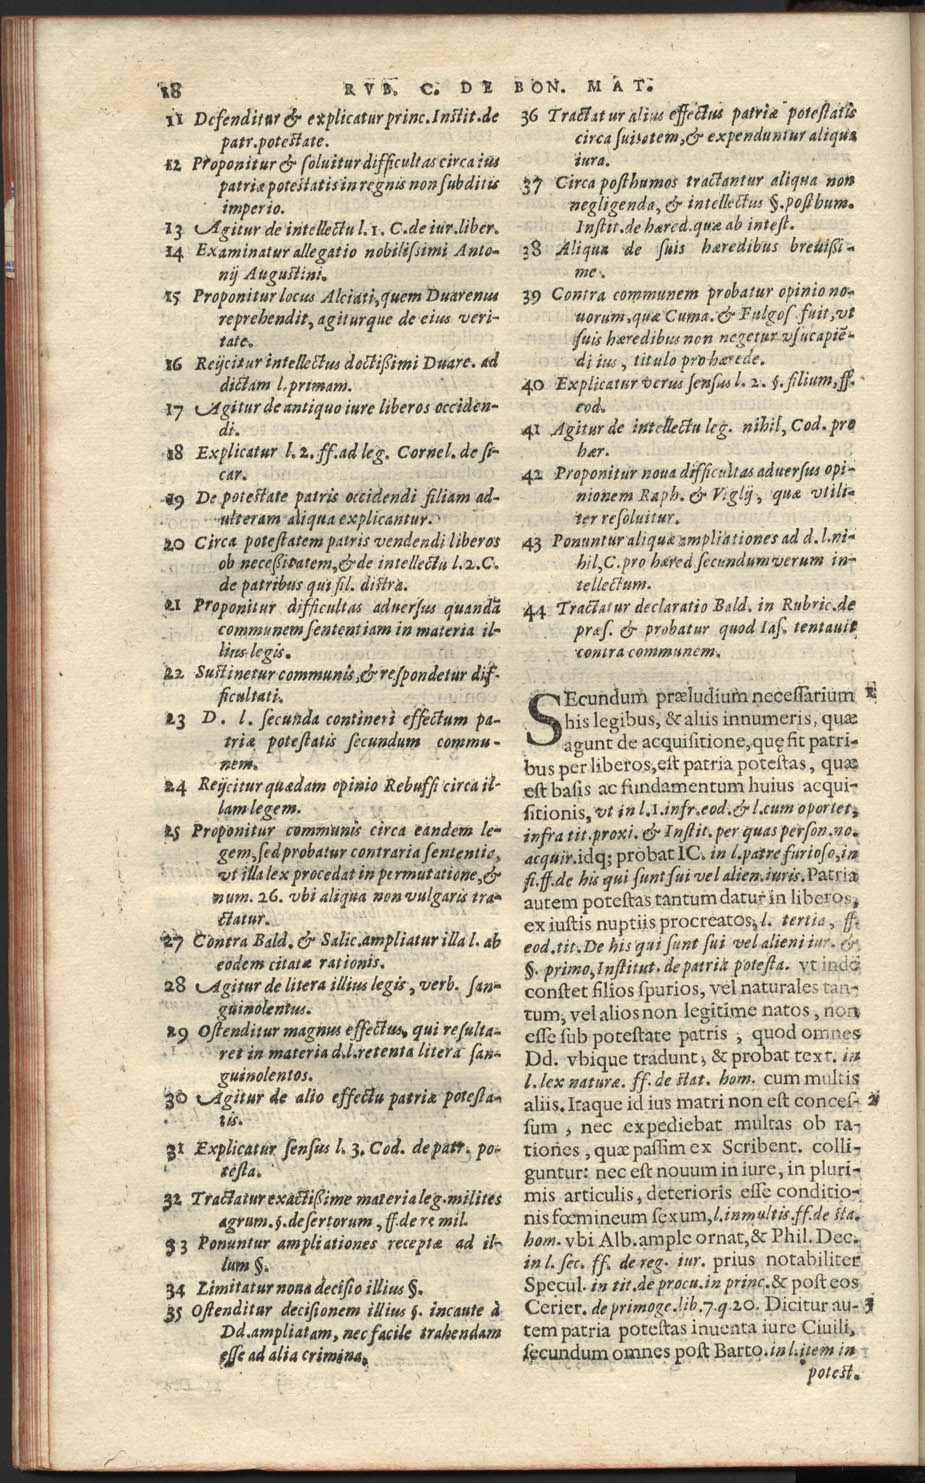 18
RVB. C. DE BON. MAT.
11 Defenditur & explicatur princ. Instit. de
patr. potestate.
12 Proponitur & soluitur difficultas circa ius
patriæ potestatis in regnis non subditis
imperio.
13 Agitur de intellectu l. 1. C. de iur. liber.
14 Examinatur allegatio nobilissimi Anto-
nij Augustini.
15 Proponitur locus Alciati, quem Duarenus
reprehendit, agiturque de eius veri-
tate.
16 Reijcitur intellectus doctißimi Duare. ad
dictam l. primam.
17 Agitur de antiquo iure liberos occiden-
di.
18 Explicatur l. 2. ff. ad leg. Cornel. de si-
car.
19 De potestate patris occidendi filiam ad-
ulteram aliqua explicantur.
20 Circa potestatem patris vendendi liberos
ob neceßitatem, & de intellectu l. 2. C.
de patribus qui fil. distra.
21 Proponitur difficultas aduersus quandā
communem sententiam in materia il-
lius legis.
22 Sustinetur communis, & respondetur dif-
ficultati.
23 D. l. secunda contineri effectum pa-
triæ potestatis secundum commu-
nem.
24 Reijcitur quædam opinio Rebuffi circa il-
lam legem.
25 Proponitur communis circa eandem le-
gem, sed probatur contraria sententia,
vt illa lex procedat in permutatione, &
num. 26. vbi aliqua non vulgaris tra-
ctatur.
27 Contra Bald. & Salic. ampliatur illa l. ab
eodem citatæ rationis.
28 Agitur de litera illius legis, verb. san-
guinolentus.
29 Ostenditur magnus effectus, qui resulta-
ret in materia d. l. retenta litera san-
guinolentos.
30 Agitur de alio effectu patriæ potesta-
tis.
31 Explicatur sensus l. 3. Cod. de patr. po-
testa.
32 Tractatur exactißime materia leg. milites
agrum. §. desertorum, ff. de re mil.
33 Ponuntur ampliationes receptæ ad il-
lum §.
34 Limitatur noua decisio illius §.
35 Ostenditur decisionem illius §. incaute à
Dd. ampliatam, nec facile trahendam
esse ad alia crimina.
36 Tractatur alius effectus patriæ potestatis
circa suitatem, & expenduntur aliqua
iura.
37 Circa posthumos tractantur aliqua non
negligenda, & intellectus §. posthum.
Instit. de hæred. quæ ab intest.
38 Aliqua de suis hæredibus breuißi-
me.
39 Contra communem probatur opinio no-
uorum, quæ Cuma. & Fulgos. fuit, vt
suis hæredibus non negetur vsucapiē-
di ius, titulo pro hærede.
40 Explicatur verus sensus l. 2. §. filium, ff.
eod.
41 Agitur de intellectu leg. nihil, Cod. pro
hær.
42 Proponitur noua difficultas aduersus opi-
nionem Raph. & Viglij, quæ vtili-
ter resoluitur.
43 Ponuntur aliquæ ampliationes ad d. l. ni-
hil, C. pro hæred secundum verum in-
tellectum.
44 Tractatur declaratio Bald. in Rubric. de
præs. & probatur quod Ias. tentauit
contra communem.
SEcundum præludium necessarium 1
his legibus, & aliis innumeris, quæ
agunt de acquisitione, quę fit patri-
bus per liberos, est patria potestas, quæ
est basis ac fundamentum huius acqui-
sitionis, vt in l. 1. infr. eod. & l. cum oportet,
infra tit. proxi. & Instit. per quas person. no.
acquir. idq; probat IC. in l. patre furioso, in
fi. ff. de his qui sunt sui vel alien. iuris. Patria
autem potestas tantum datur in liberos,
ex iustis nuptiis procreatos, l. tertia, ff.
eod. tit. De his qui sunt sui vel alieni iur. &
§. primo, Institut. de patria potesta. vt inde
constet filios spurios, vel naturales tan-
tum, vel alios non legitime natos, non
esse sub potestate patris, quod omnes
Dd. vbique tradunt, & probat text. in
l. lex naturæ. ff. de stat. hom. cum multis
aliis. Itaque id ius matri non est conces- 2
sum, nec expediebat multas ob ra-
tiones, quæ passim ex Scribent. colli-
guntur: nec est nouum in iure, in pluri-
mis articulis, deterioris esse conditio-
nis fœmineum sexum, l. in multis. ff. de sta.
hom. vbi Alb. ample ornat, & Phil. Dec.
in l. sec. ff. de reg. iur. prius notabiliter
Specul. in tit. de procu. in princ. & post eos
Cerier. de primoge. lib. 7. q. 20. Dicitur au- 3
tem patria potestas inuenta iure Ciuili,
secundum omnes post Barto. in l. item in
potest.